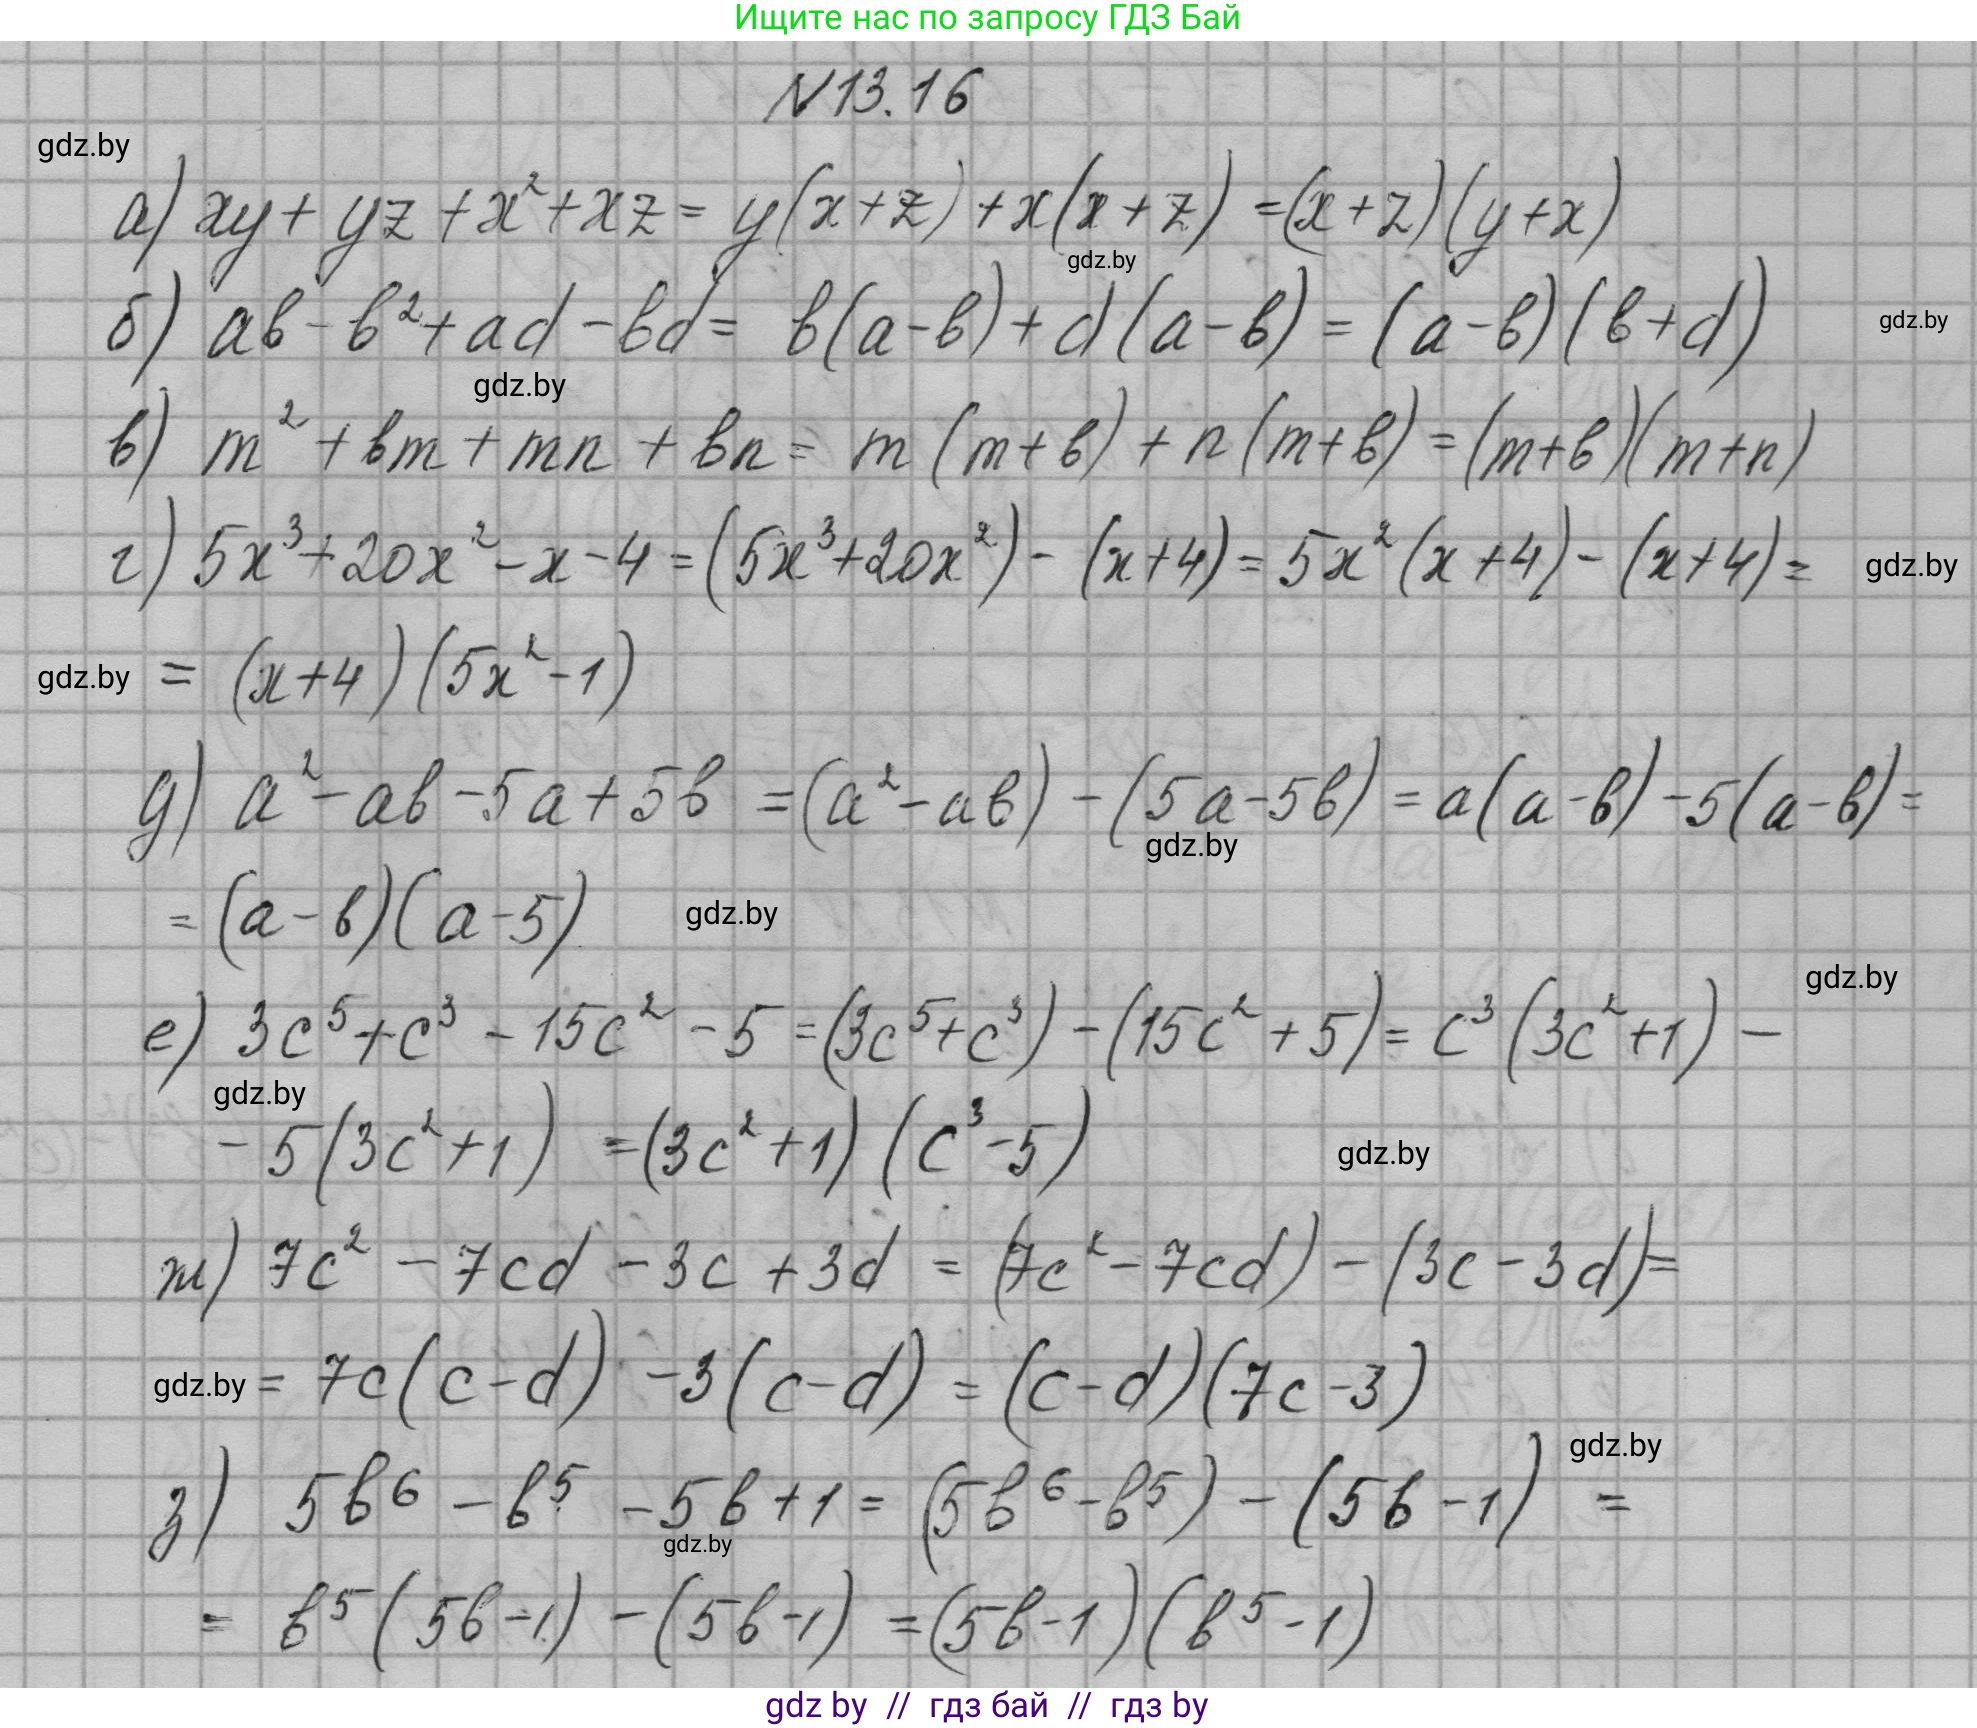 Ищите нас по запросу ГДЗ Бай
N13.16
gdz.by
а) xy + yz + x² + xz = y(x+z) + x(x+z) = (x+z)(y+x)
gdz.by
б) ab - b² + ad - bd = b(a-b) + d(a-b) = (a-b)(b+d)
gdz.by
gdz.by
в) m² + bm + mn + bn = m(m+b) + n(m+b) = (m+b)(m+n)
г) 5x³ + 20x² - x - 4 = (5x³+20x²) - (x+4) = 5x²(x+4) - (x+4) =
gdz.by
gdz.by
= (x+4)(5x²-1)
д) a² - ab - 5a + 5b = (a²-ab) - (5a-5b) = a(a-b) - 5(a-b) =
gdz.by
= (a-b)(a-5)
gdz.by
gdz.by
е) 3c⁵ + c³ - 15c² - 5 = (3c⁵+c³) - (15c²+5) = c³(3c²+1) -
gdz.by
- 5(3c²+1) = (3c²+1)(c³-5)
gdz.by
ж) 7c² - 7cd - 3c + 3d = (7c²-7cd) - (3c-3d) =
gdz.by
= 7c(c-d) - 3(c-d) = (c-d)(7c-3)
gdz.by
з) 5b⁶ - b⁵ - 5b + 1 = (5b⁶-b⁵) - (5b-1) =
gdz.by
= b⁵(5b-1) - (5b-1) = (5b-1)(b⁵-1)
gdz by // гдз бай // гдз by